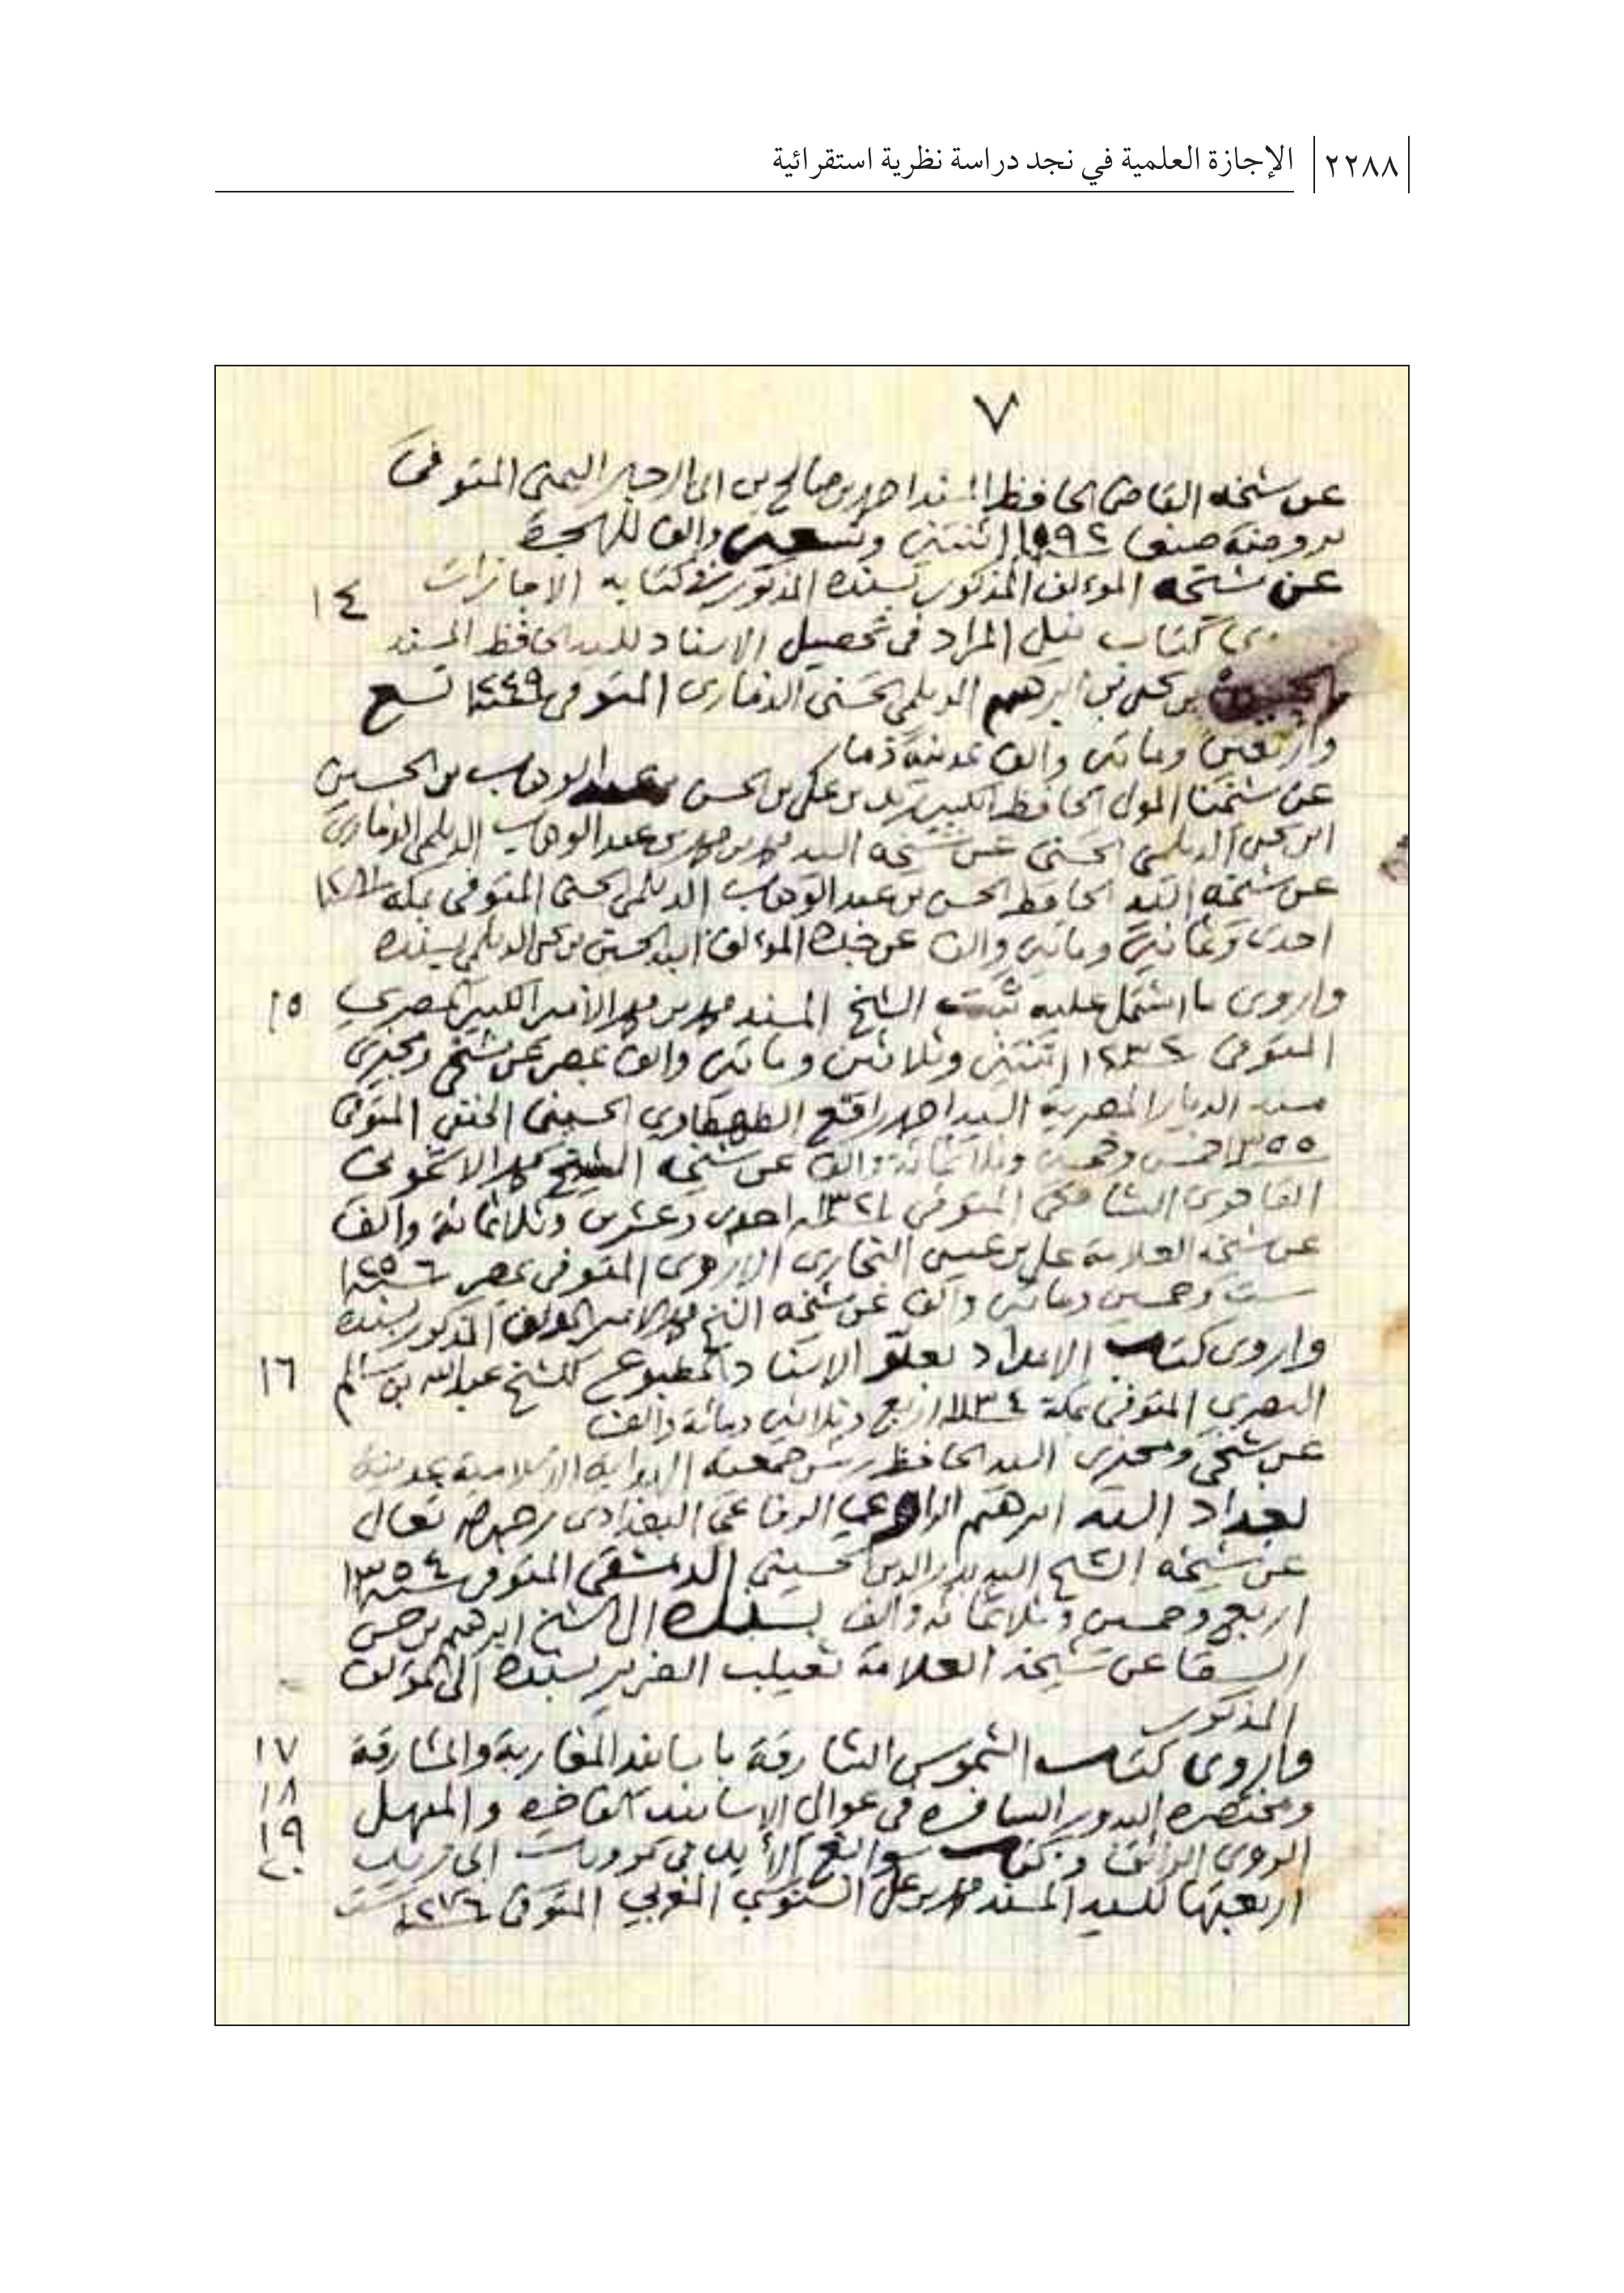 ٢٢٨٨ الإجازة العلمية في نجد دراسة نظرية استقرائية
٧
عن شيخه القاضي الحافظ المسند احمد بن صالح بن ابي الرجال اليمني المتوفى
بروضة صنعا ١٠٩٢ اثنتين وتسعين والف للهجرة
عن شيخه المؤلف المذكور بسنده المذكور في كتابه الاجازات
١٤
كتاب نيل المراد في تحصيل الاسناد للسيد الحافظ المسند
الحسين بن يحيى بن ابرهيم الديلمي الحسني الذماري المتوفى ١٢٤٩ تسع
واربعين وماتين والف بمدينة ذمار
عن شيخنا المولى الحافظ الكبير زيد بن علي بن الحسن بن عبد الوهاب بن الحسين
ابن يحيى الديلمي الحسني عن شيخه السيد محمد بن محمد بن عبد الوهاب الديلمي الذماري
عن شيخه السيد الحافظ الحسن بن عبد الوهاب الديلمي الحسني المتوفى بمكة ١٢٨١
احدى وثمانين وماتين والف عن جده المؤلف السيد الحسين بن يحيى الديلمي بسنده
واروي ما اشتمل عليه ثبت الشيخ المسند محمد بن محمد الأمير الكبير المصري ١٥
المتوفى ١٢٣٢ اثنتين وثلاثين وماتين والف بمصر عن شيخي ومجيزي
مسند الديار المصرية السيد احمد رافع الطهطاوي الحسيني الحنفي المتوفى
١٣٥٥ خمس وخمسين وثلاثمائة والف عن شيخه الشيخ محمد الاشموني
الشافعي المتوفى ١٣٢١ احدى وعشرين وثلاثمائة والف
عن شيخه العلامة علي بن عيسى النجاري المتوفى بمصر سنة ١٢٥٦
ست وخمسين وماتين والف عن شيخه الشيخ محمد الامير المؤلف المذكور بسنده
واروي كتاب الامداد بعلو الاسناد المطبوع للشيخ عبدالله بن سالم ١٦
البصري المتوفى بمكة ١١٣٤ اربع وثلاثين ومائة والف
عن شيخي ومجيزي السيد الحافظ رئيس جمعية الهداية الاسلامية بمدينة
بغداد السيد ابرهيم الراوي الرفاعي البغدادي رحمه الله تعالى
عن شيخه الشيخ السيد بدر الدين الحسيني الدمشقي المتوفى سنة ١٣٥٤
اربع وخمسين وثلاثمائة والف بسنده الى الشيخ ابرهيم بن حسن
السقا عن شيخه العلامة ثعيلب الضرير بسنده الى المؤلف
المذكور
واروي كتاب الشموس الشارقة باسانيد المغاربة والمشارقة ١٧
ومختصره البدور السافرة في عوالي الاسانيد الفاخرة والمنهل ١٨
الروي الرائق وكتاب سوابغ الأيد في مرويات ابي زيد ١٩
اربعتها للسيد المسند محمد بن علي السنوسي المغربي المتوفى ١٢٧٦ ست ٢٠